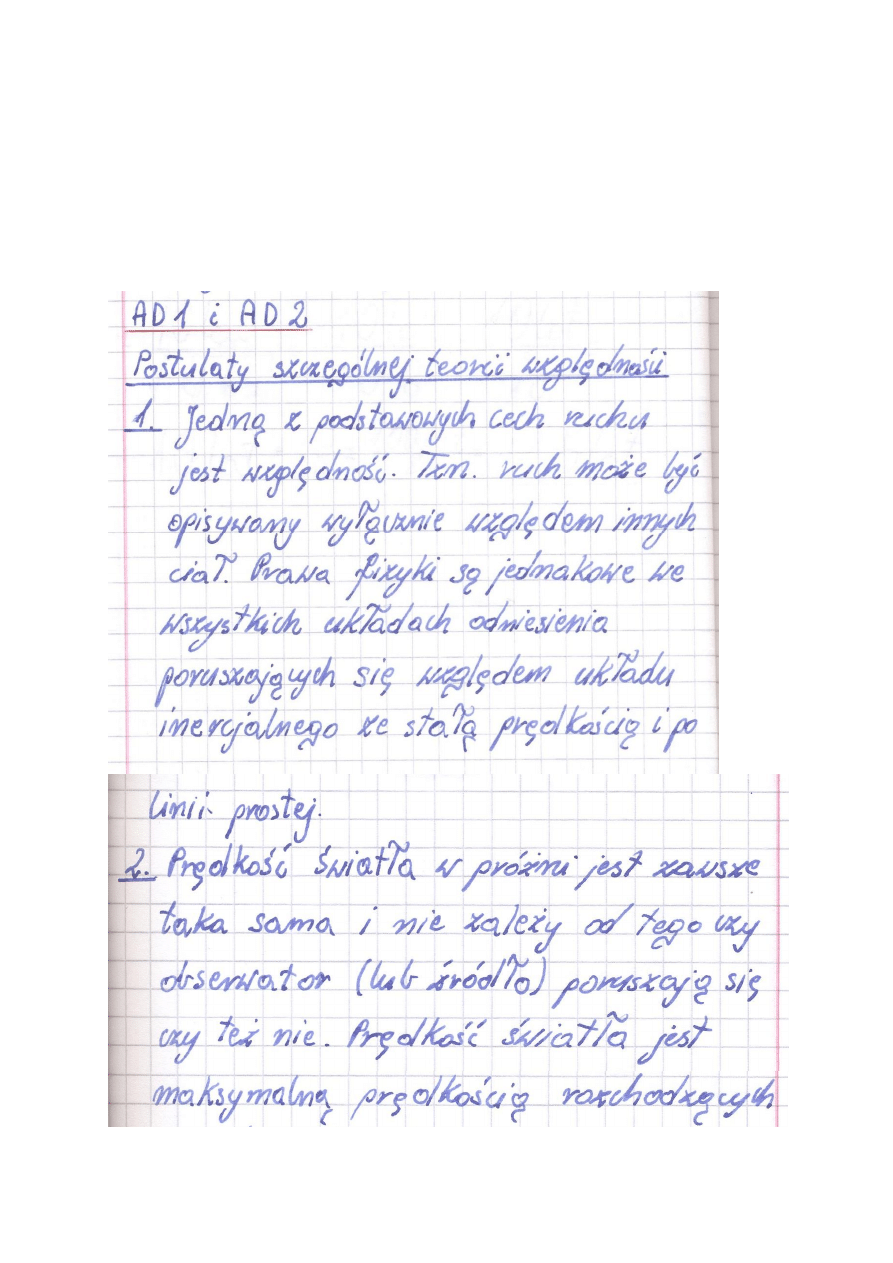 AD 1 i AD 2
Postulaty szczególnej teorii względności
1. Jedną z podstawowych cech ruchu
jest względność. Tzn. ruch może być
opisywany wyłącznie względem innych
ciał. Prawa fizyki są jednakowe we
wszystkich układach odniesienia
poruszających się względem układu
inercjalnego ze stałą prędkością i po
linii prostej.
2. Prędkość światła w próżni jest zawsze
taka sama i nie zależy od tego czy
obserwator (lub źródło) poruszają się
czy też nie. Prędkość światła jest
maksymalną prędkością rozchodzących